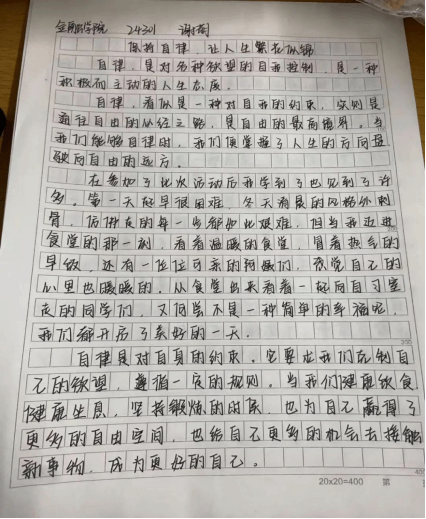 金融学院 24301 谢
保持自律，让人生繁花似锦
自律，是对各种欲望的自我控制，是一种
积极而主动的人生态度。
自律，看似是一种对自我的约束，实则是
通往自由的必经之路，是自由的最高境界。当
我们能够自律时，我们便掌握了人生的方向盘
驶向自由的远方。
在参加了此次活动后我学到了也见到了许
多。第一天起早很困难，冬天清晨的风格外刺
骨，仿佛走的每一步都如此艰难，但当我迈进
食堂的那一刻，看着温暖的食堂，冒着热气的
早饭，还有一位位可亲的阿姨们，感觉自己的
心里也暖暖的。从食堂出来看着一起向自习室
走的同学们，又何尝不是一种简单的幸福呢，
我们都开启了美好的一天。
自律是对自身的约束。它要求我们克制自
己的欲望，遵循一定的规则。当我们健康饮食
健康生息，坚持锻炼的时候，也为自己赢得了
更多的自由空间，也给自己更多的机会去接触
新事物，成为更好的自己。
20x20=400 第